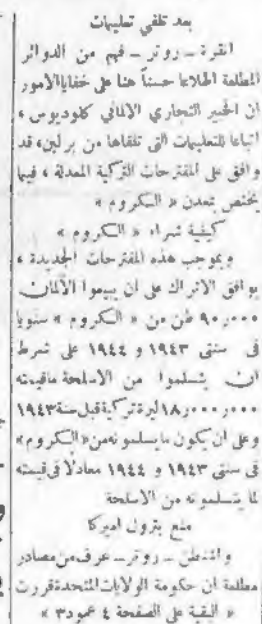 بعد تلقي تعليمات
انقرة ــ روتر ــ فهم من الدوائر
المطلعة اطلاعا حسناً هنا على خفايا الامور
ان الخبير التجاري الالماني كلوديوس ،
اتباعا للتعليمات التى تلقاها من برلين، قد
وافق على المقترحات التركية المعدلة ، فيما
يختص بمعدن « الكروم »
كيفية شراء « الكروم »
وبموجب هذه المقترحات الجديدة ،
يوافق الاتراك على ان يبيعوا الألمان
٩٠٠٠٠ طن من « الكروم » سنويا
فى سنتى ١٩٤٣ و ١٩٤٤ على شرط
ان يتسلموا من الاسلحة ماقيمته
١٨٠٠٠٠٠٠ ليرة تركية قبل سنة ١٩٤٣
وعلى ان يكون مايسلمونه من « الكروم »
فى سنتى ١٩٤٣ و ١٩٤٤ معادلا فى قيمته
لما يتسلمونه من الاسلحة
منع بترول اميركا
واشنطن ــ روتر ــ عرف من مصادر
مطلعة ان حكومة الولايات المتحدة قررت
« البقية على الصفحة ٤ عمود ٣ »